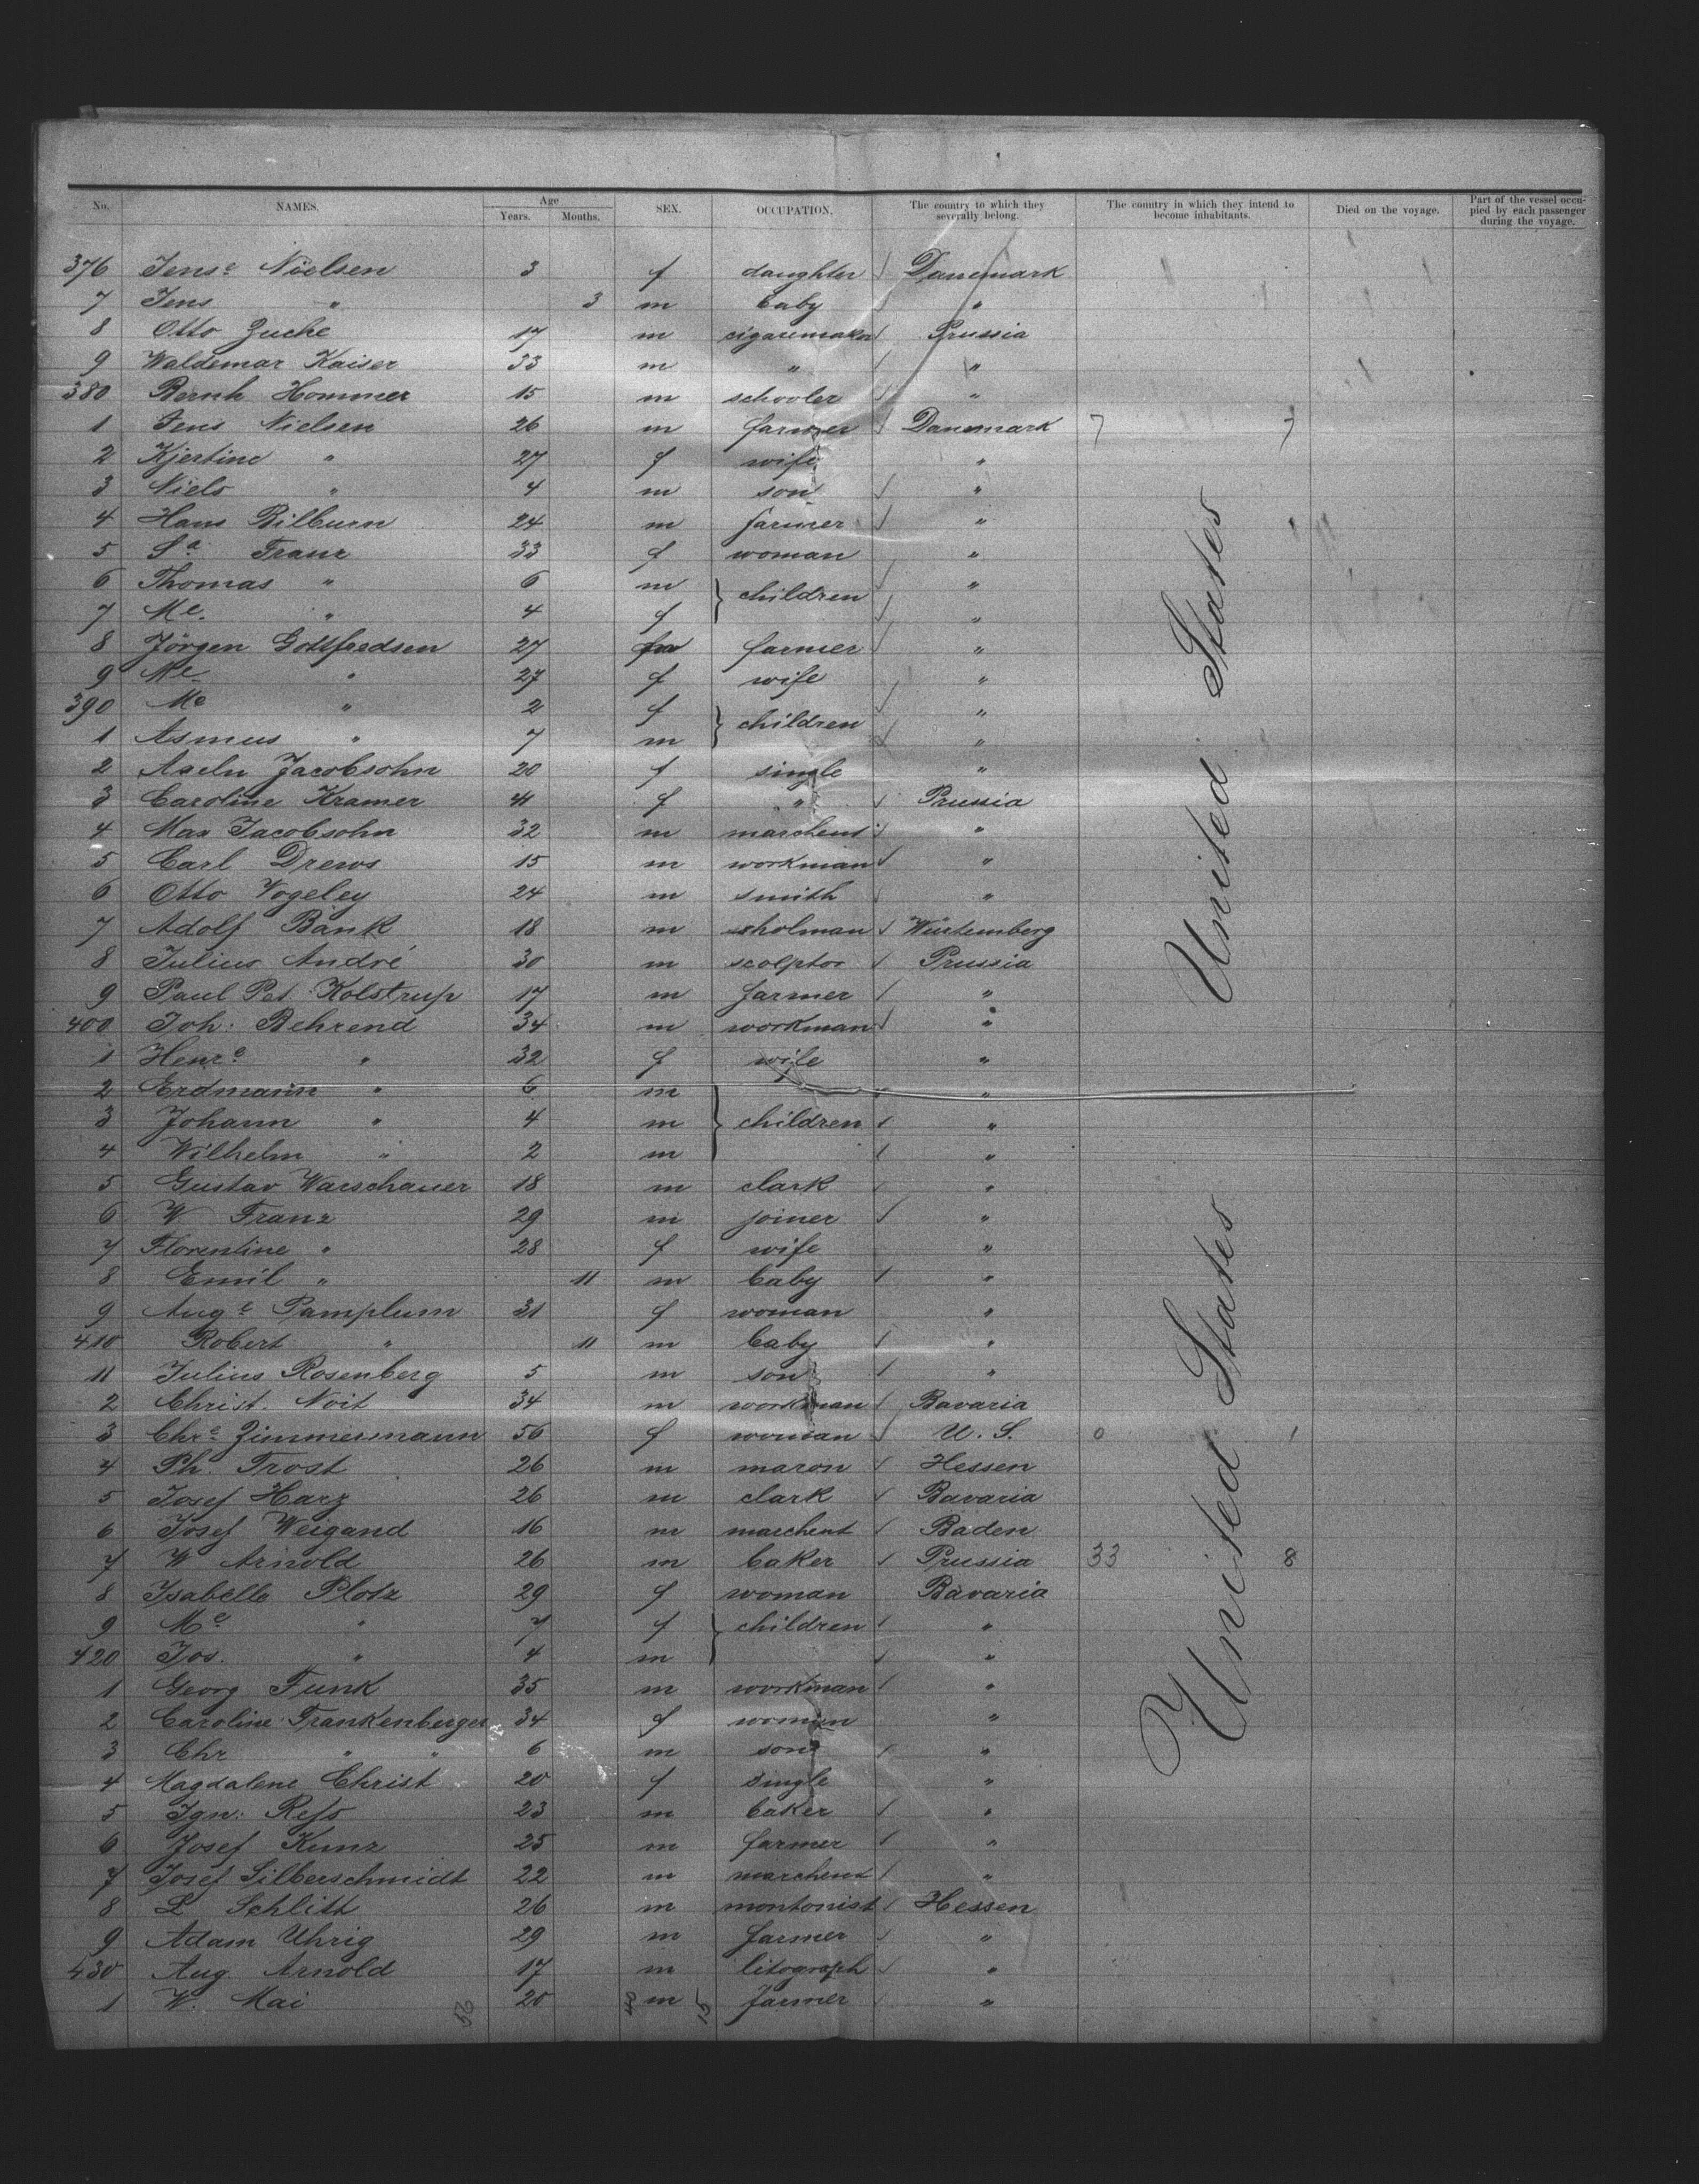 No. NAMES. Age Years. Months. SEX. OCCUPATION. The country to which they severally belong. The country in which they intend to become inhabitants. Died on the voyage. Part of the vessel occupied by each passenger during the voyage.
376 Jens.e Nielsen 3 f daughter Danemark
7 Jens " 3 m baby "
8 Otto Zuche 17 m cigaremaker Prussia
9 Waldemar Kaiser 33 m " "
380 Bernh Hommer 15 m schooler "
1 Jens Nielsen 26 m farmer Danemark 7 7
2 Kjertine " 27 f wife "
3 Niels " 4 m son "
4 Hans Bilbum 24 m farmer "
5 S.a Franz 33 f woman "
6 Thomas " 6 m } children "
7 M.e " 4 f "
8 Jörgen Gottfredsen 27 m farmer "
9 M.e " 27 f wife "
390 M.e " 2 f } children "
1 Asmus " 7 m "
2 Axeln Jacobsohn 20 f single "
3 Caroline Kramer 41 f " Prussia
4 Max Jacobsohn 32 m marchent "
5 Carl Drews 15 m workman "
6 Otto Vogeley 24 m smith "
7 Adolf Bänk 18 m sholman Würtemberg
8 Julius André 30 m scolptor Prussia
9 Paul Pet. Kolstrup 17 m farmer "
400 Joh: Behrend 34 m workman "
1 Henr.e " 32 f wife "
2 Erdmann " 6 m "
3 Johann " 4 m } children "
4 Wilhelm " 2 m "
5 Gustav Warschauer 18 m clark "
6 W Franz 29 m joiner "
7 Florentine " 28 f wife "
8 Emil " 11 m baby "
9 Aug.e Pamplum 31 f woman "
410 Robert " 11 m baby "
11 Julius Rosenberg 5 m son "
2 Christ. Noit 34 m workman Bavaria
3 Chr.e Zimmermann 56 f woman U. S. 0 1
4 Ph. Trost 26 m maron Hessen
5 Josef Harz 26 m clark Bavaria
6 Josef Weigand 16 m marchent Baden
7 W Arnold 26 m baker Prussia 33 8
8 Isabella Plotz 29 f woman Bavaria
9 M.e " 7 f } children "
420 Jos. " 4 m "
1 Georg Funk 35 m workman "
2 Caroline Frankenberger 34 f woman "
3 Chr " " 6 m son "
4 Magdalene Christ 20 f single "
5 Ign: Reſs 23 m baker "
6 Josef Kunz 25 m farmer "
7 Josef Silberschmidt 22 m marchent "
8 L Schlitt 26 m montonist Hessen
9 Adam Uhrig 29 m farmer "
430 Aug. Arnold 17 m litograph "
1 W. Mai 20 m farmer "
United States
United States